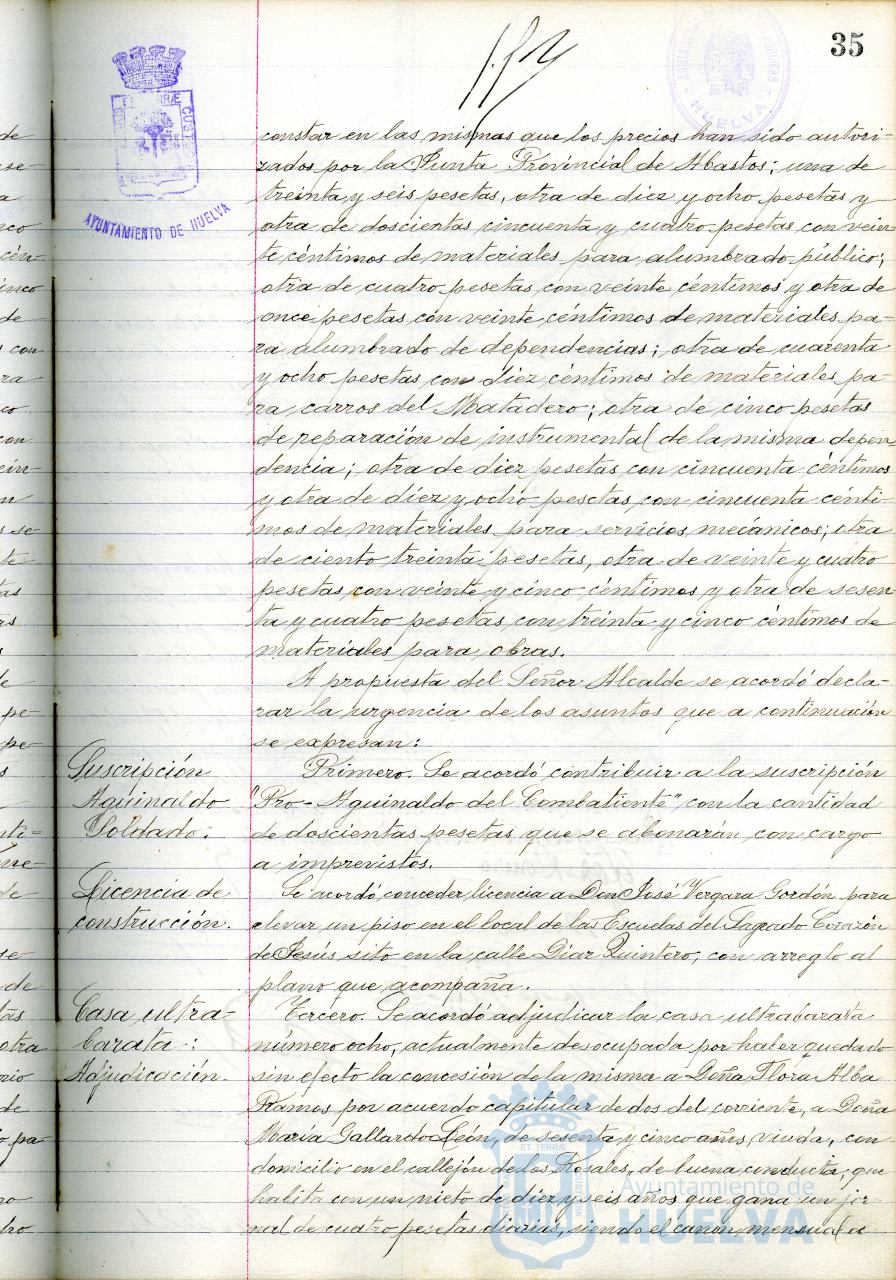 35
AYUNTAMIENTO DE HUELVA
HUELVA
constar en las mismas que los precios han sido autori-
zados por la Junta Provincial de Abastos; una de
treinta y seis pesetas, otra de diez y ocho pesetas y
otra de doscientas cincuenta y cuatro pesetas con vein-
te céntimos de materiales para alumbrado público;
otra de cuatro pesetas con veinte céntimos y otra de
once pesetas con veinte céntimos de materiales pa-
ra alumbrado de dependencias; otra de cuarenta
y ocho pesetas con diez céntimos de materiales pa-
ra carros del Matadero; otra de cinco pesetas
de reparación de instrumental de la misma depen-
dencia; otra de diez pesetas con cincuenta céntimos
y otra de diez y ocho pesetas con cincuenta cénti-
mos de materiales para servicios mecánicos; otra
de ciento treinta pesetas, otra de veinte y cuatro
pesetas con veinte y cinco céntimos y otra de sesen-
ta y cuatro pesetas con treinta y cinco céntimos de
materiales para obras.
A propuesta del Señor Alcalde se acordó decla-
rar la urgencia de los asuntos que a continuación
se expresan:
Suscripción
Aguinaldo
Soldado:
Primero. Se acordó contribuir a la suscripción
"Pro-Aguinaldo del Combatiente" con la cantidad
de doscientas pesetas que se abonarán con cargo
a imprevistos.
Licencia de
construcción.
Se acordó conceder licencia a Don José Vergara Gordón para
elevar un piso en el local de las Escuelas del Sagrado Corazón
de Jesús sito en la calle Díaz Quintero, con arreglo al
plano que acompaña.
Casa ultra-
barata:
Adjudicación.
Tercero. Se acordó adjudicar la casa ultrabarata
número ocho, actualmente desocupada por haber quedado
sin efecto la concesión de la misma a Doña Flora Alba
Ramos por acuerdo capitular de dos del corriente, a Doña
María Gallardo León, de sesenta y cinco años, viuda, con
domicilio en el callejón de los Rosales, de buena conducta, que
habita con un nieto de diez y seis años que gana un jor-
nal de cuatro pesetas diarias, siendo el canon mensual a
Ayuntamiento de
HUELVA